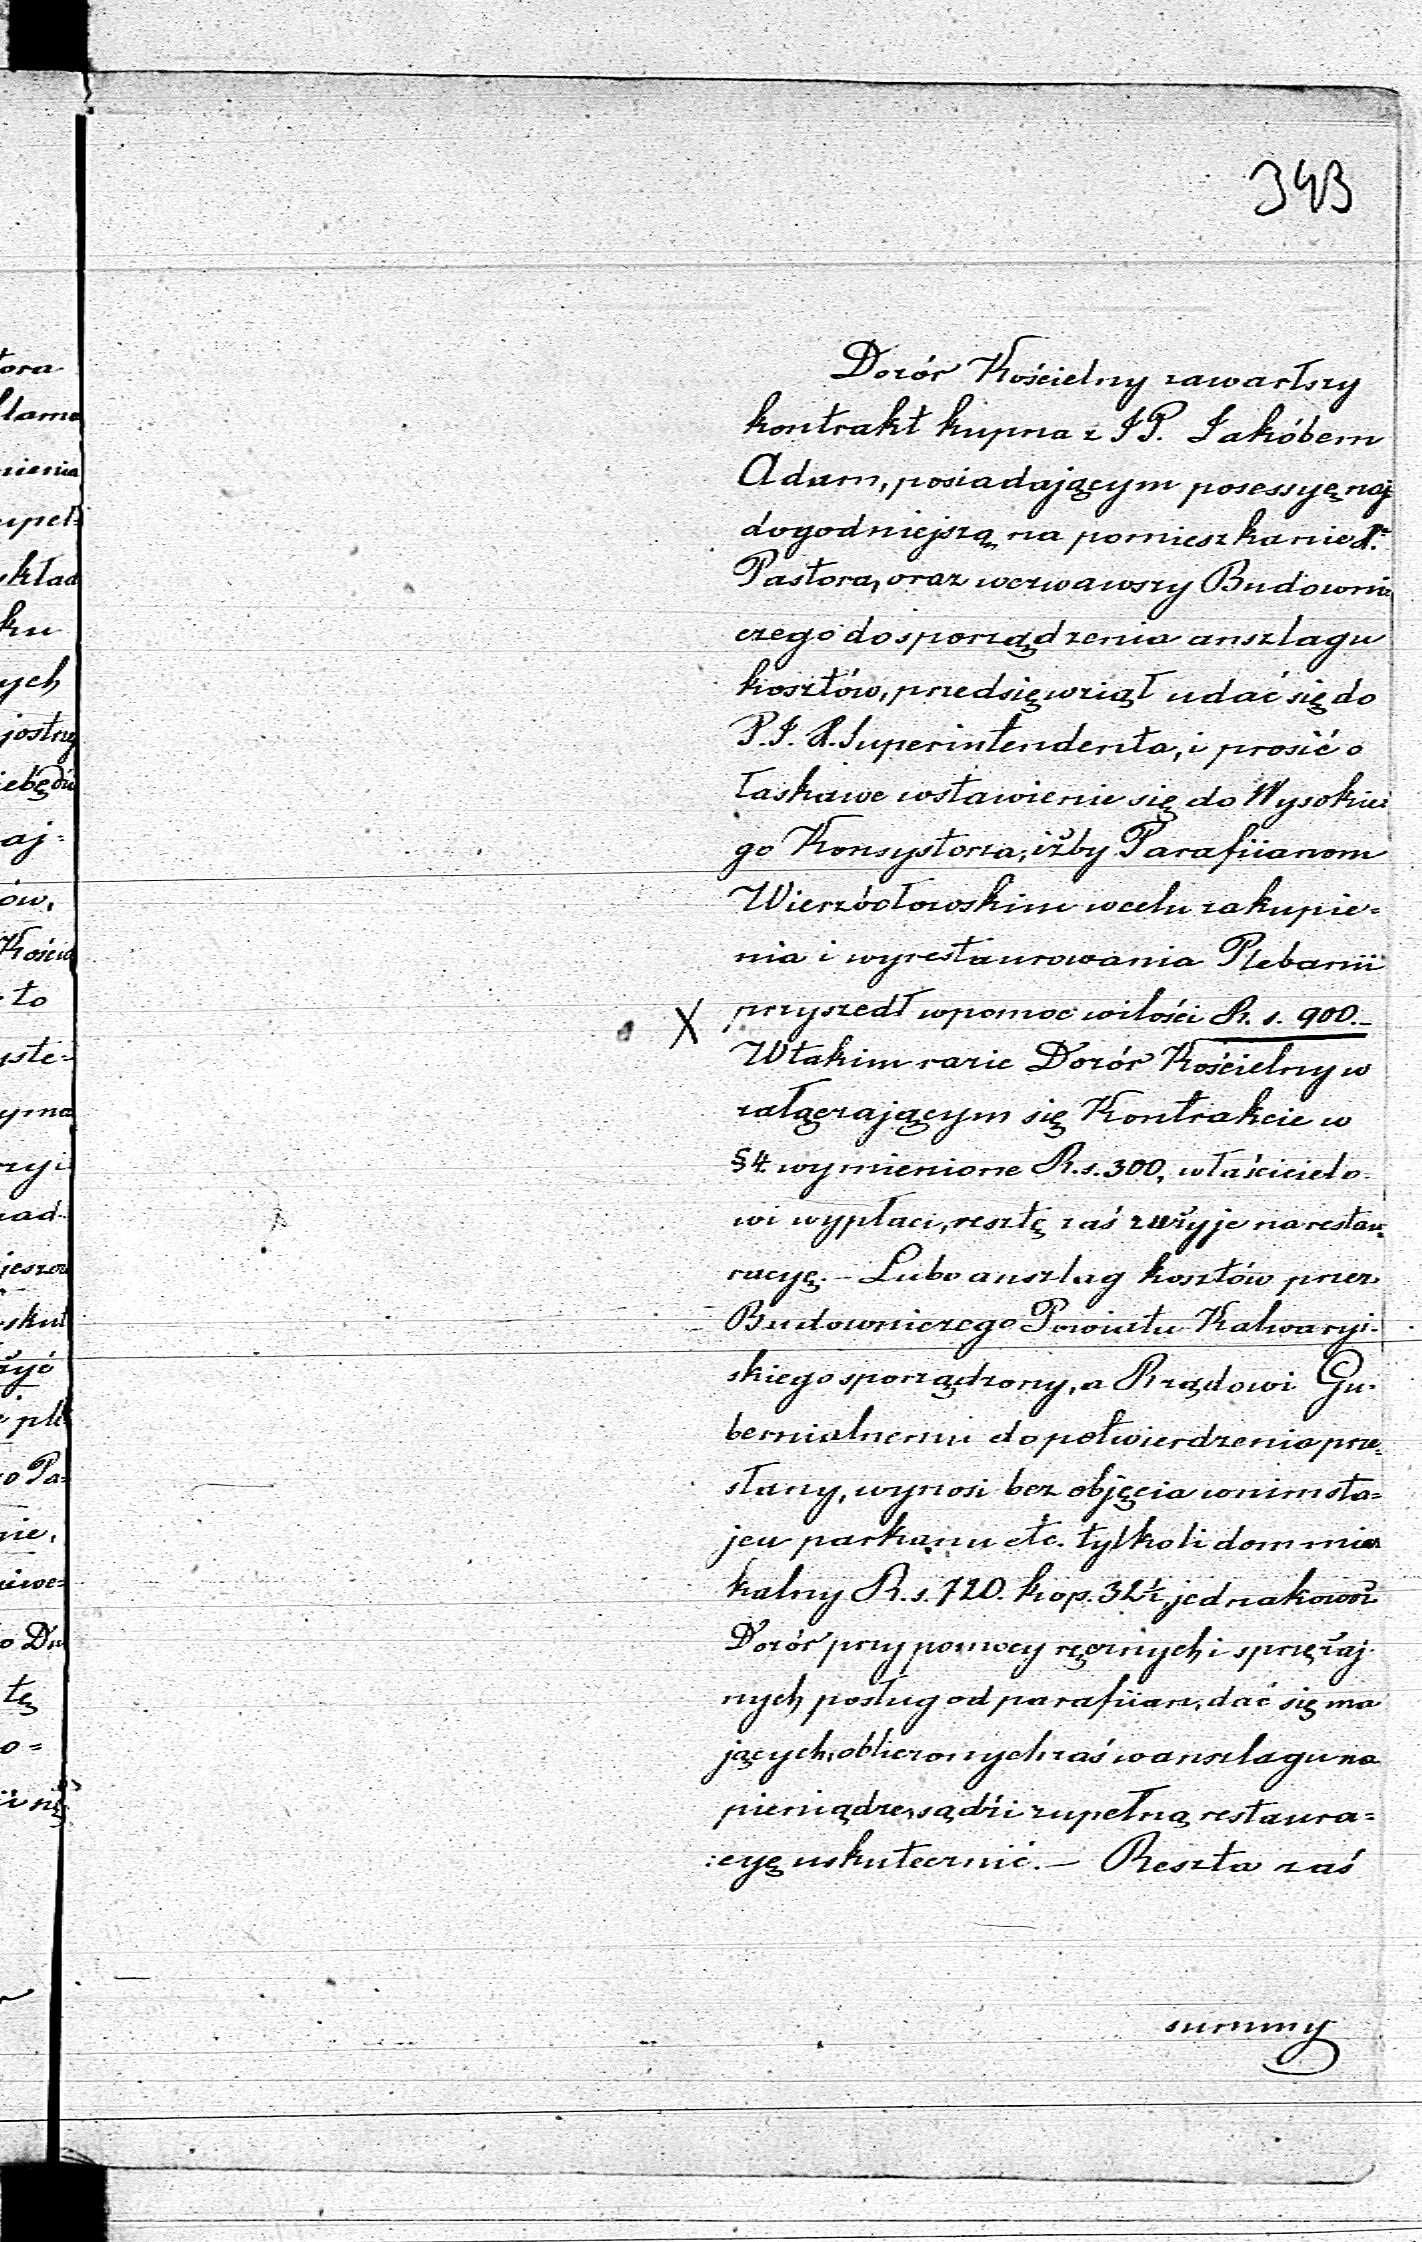 343
Dozór Kościelny zawarłszy
kontrakt kupna z JP. Jakóbem
Adam, posiadającym posessyę naj
dogodniejszą na pomieszkanie
Pastora, oraz wezwawszy Budowni
czego do sporządzenia anszlagu
kosztów, przedsięwziął udać się do
P. J. X. Superintendenta, i prosić o
łaskawe wstawienie się do Wysokie
go Konsystorza, iżby Parafiianom
Wierzbołowskim w celu zakupie=
nia i wyrestaurowania Plebanii
X przyszedł w pomoc w ilości R. s. 900.–
W takim razie Dozór Kościelny w
załączającym się Kontrakcie w
§ 4 wymienione R. s. 300, właścicielo
wi wypłaci, resztę zaś zużyje na restau=
racyę. – Lubo anszlag kosztów przez
Budowniczego Powiatu Kalwaryi-
skiego sporządzony, a Rządowi Gu-
bernialnemu do potwierdzenia prze=
słany, wynosi bez objęcia w nim sta=
jen parkanu etc. tylko li dom miesz
kalny R. s. 720. kop. 32½, jednakowoż
Dozór przy pomocy ręcznych i sprzężaj-
nych posług od parafiian, dać się ma
jących, obliczonych zaś w anszlagu na
pieniądze, sądzi zupełną restaura=
:cyę uskutecznić. – Reszta zaś
summy
tora
nienia
upeł=
kład
ku
ych
aj-
ów,
Kości
to
yste-
nad-
o Pa-
nie,
tę
o=